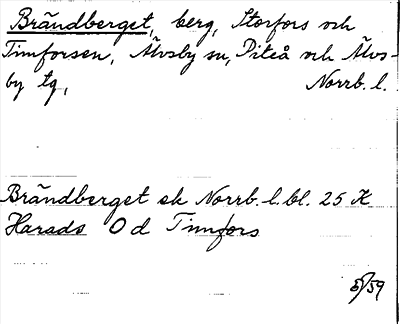 Brändberget, berg, Storfors och
Timforsen, Älvsby sn, Piteå och Älvs-
by tg, Norrb. l.
Brändberget ek Norrb. l. bl. 25 K
Harads O d Timfors
5/59